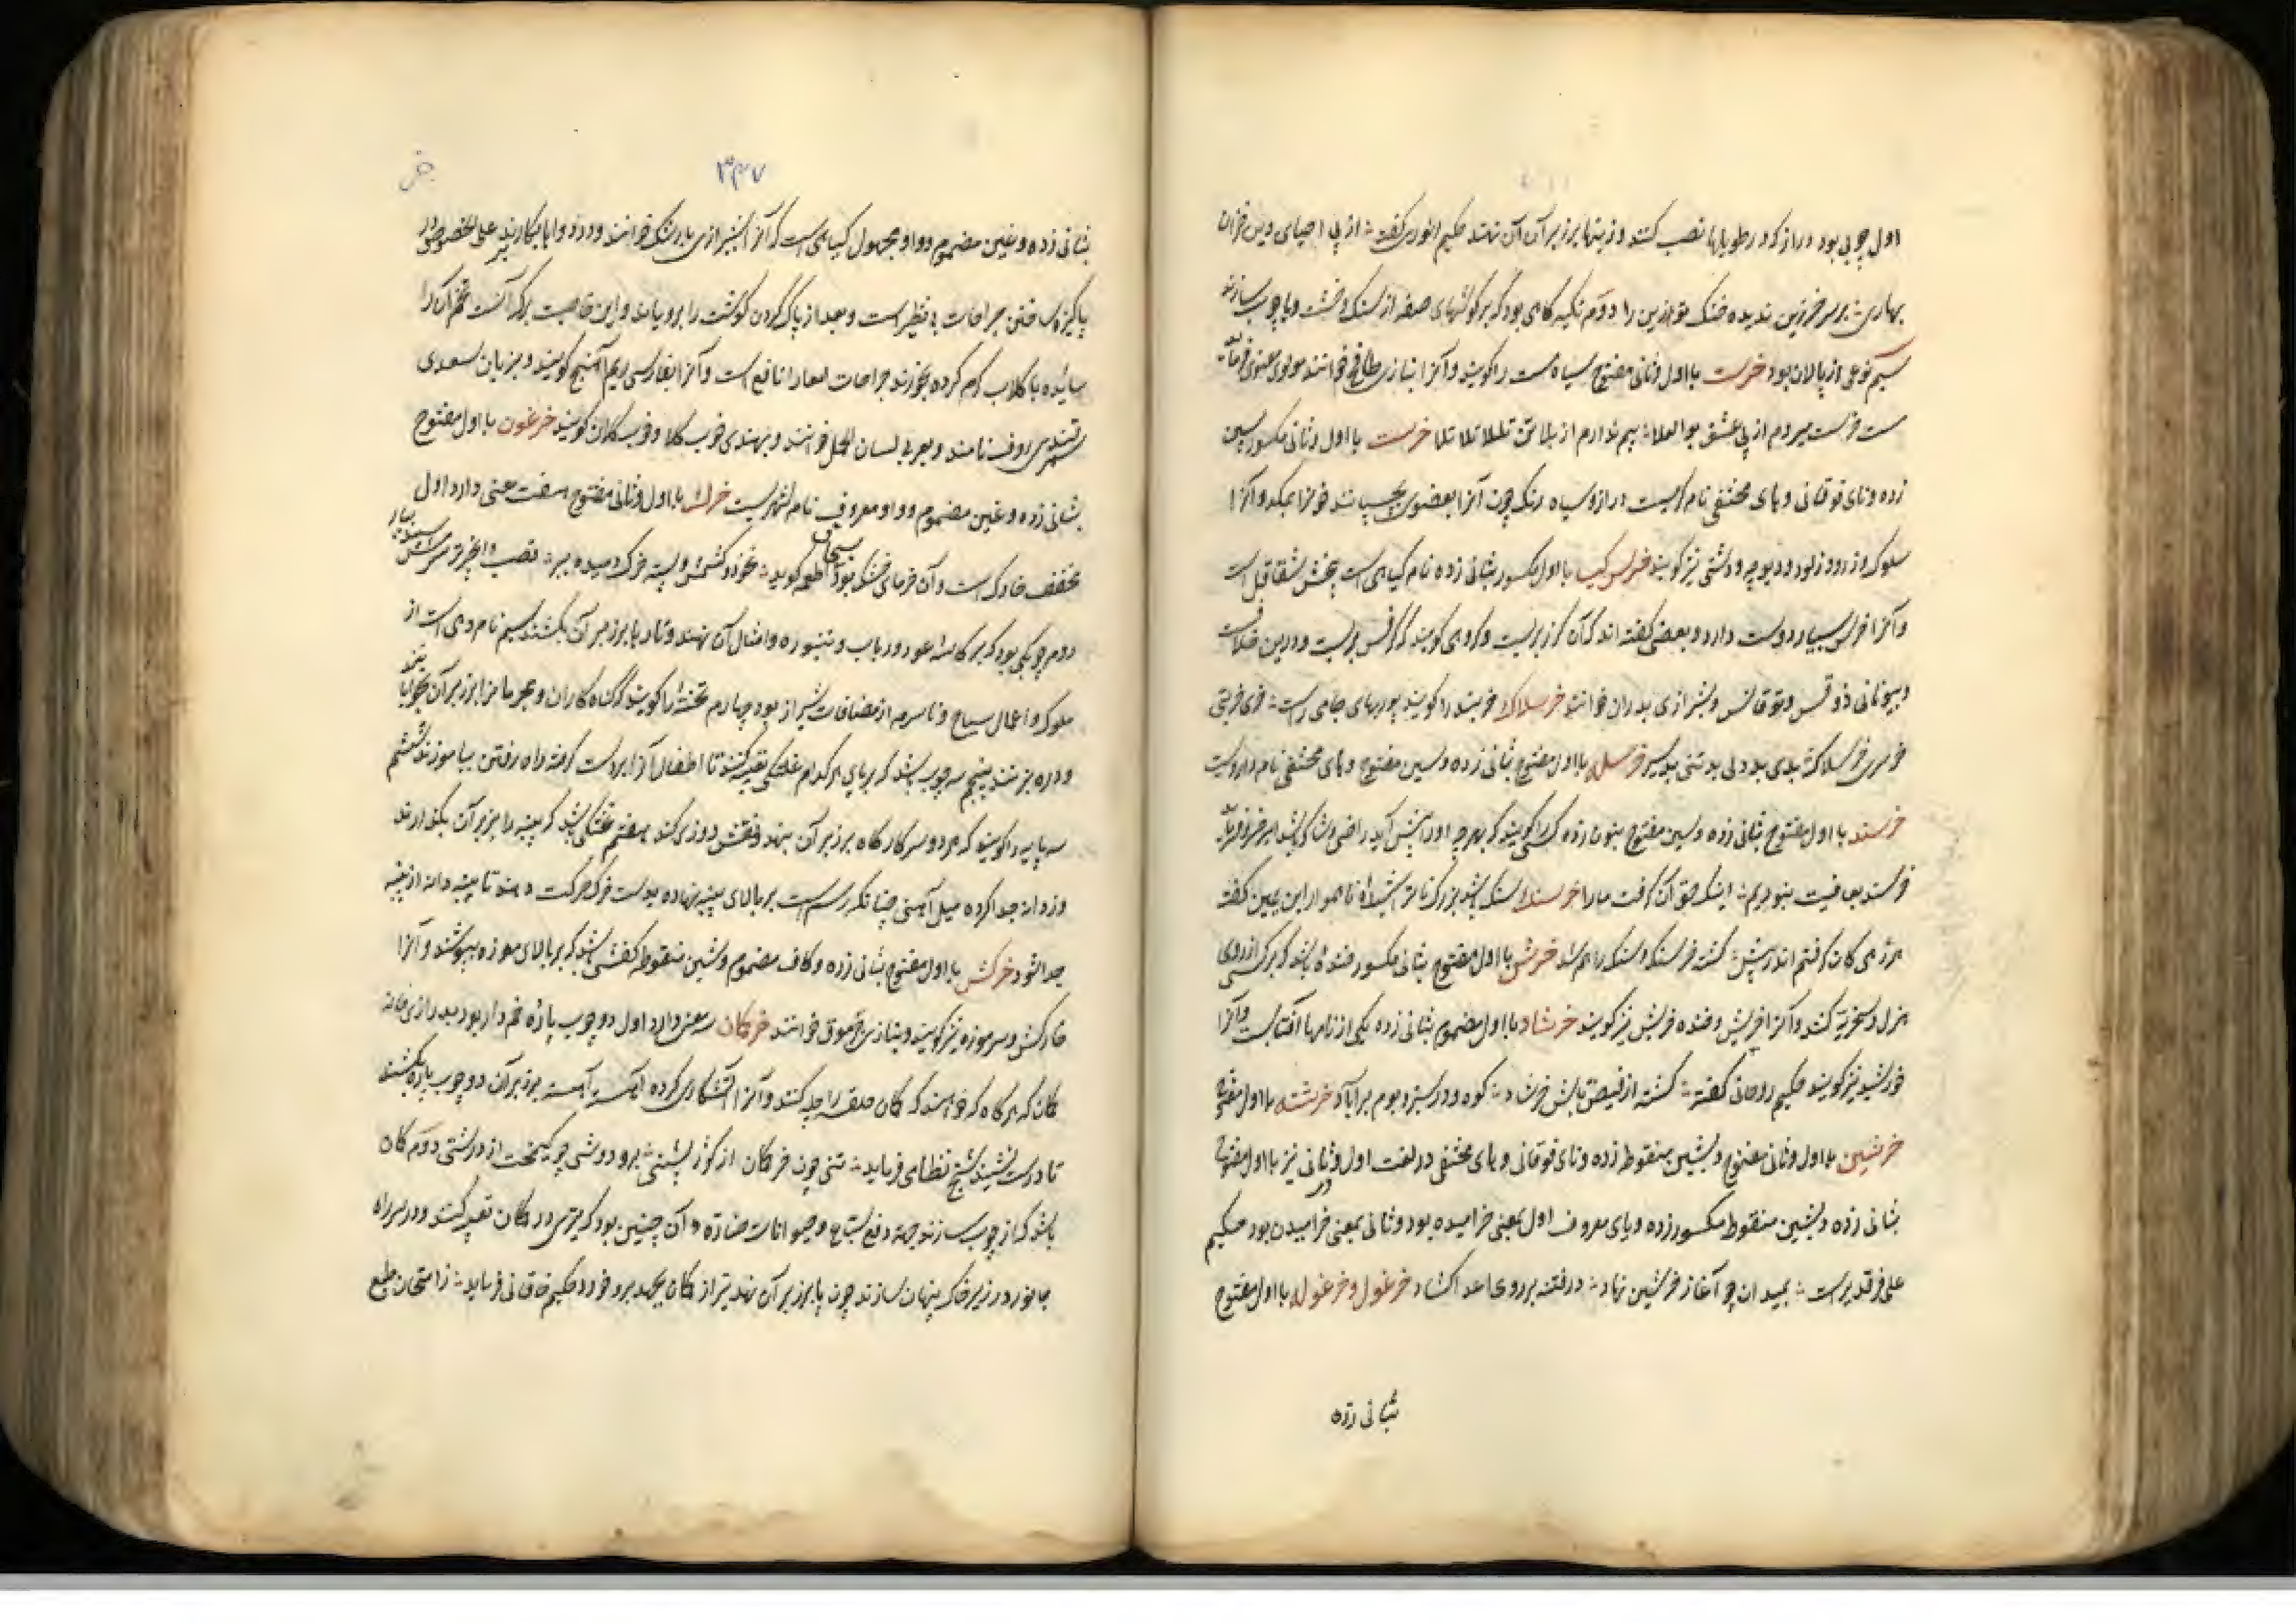 اول چوبی بود دراز که در طویلها نصب کنند و زینها بر زبر آن نهند حکیم انوری گفته از پی احیای دین خزان
بهاری بر سر خرزین ندیده خنک تو زین را دوم تکیه گاهی بود که بر گوشهای صفه از سنک و خشت و یا چوب سازند
سیم نوعی از پالان بود خرست با اول و ثانی مفتوح سیاه مست را گویند و آنرا بتازی طافح خوانند مولوی معنوی فرماید
مست خرست میروم از پی عشق بوالعلا بیم ندارم از بلا تن تللا تلا تلا خرسته با اول و ثانی مکسور بسین
زده و تای فوقانی و های مختفی نام کرمیست دراز و سیاه رنک چون آنرا بعضوی بچسپانند خونرا بمکد و آنرا
سلوک و زرو و زلو و دیوچه و دشتی نیز گویند خرس گیا با اول مکسور بثانی زده نام گیاهی است بیخش شقاقل است
و آنرا خرس بسیار دوست دارد و بعضی گفته اند که آن گزر بریست و گروهی گویند که کرفس بریست و درین خلافست
و بیونانی ذوقس و توقالس و بشیرازی بدران خوانند خرسلاک خربنده را گویند پوربهای جامی راست خری خربتی
خرسری خرسلاکی بدی بد دلی بد تنی بد سیر خرسله با اول مفتوح بثانی زده و سین مفتوح و های مختفی نام داروییست
خرسند با اول مفتوح بثانی زده و سین مفتوح بنون زده کسی را گویند که بهرچه او را پیش آید راضی و شاکر باشد امیر خسرو فرماید
خرسند بعافیت نبودیم اینک حق آن گرفت ما را خرسنک سنک باشد بزرک ناتراشیدهٔ ناهموار ابن یمین گفته
هر زهی کان گرفتم اندر پیش گشته خرسنک و سنک راهم شد خرش با اول مفتوح بثانی مکسور خنده باشد که بر کسی از روی
هزل و سخریه کنند و آنرا خریش و خنده خریش نیز گویند خرشاد با اول مضموم بثانی زده یکی از نامهای آفتابست و آنرا
خورشید نیز گویند حکیم روحانی گفته گشته از فیض تابش خرشاد کوه و در سبز و بوم بر آباد خرشته با اول مفتوح
خرشین با اول و ثانی مفتوح و بشین منقوطه زده و تای فوقانی و های مختفی در لغت اول و در ثانی نیز با اول مفتوح
بثانی زده و بشین منقوطه مکسور زده و یای معروف اول بمعنی خرامیده بود و ثانی بمعنی خرامیدن بود حکیم
علی فرقدی راست بمیدان چو آغاز خرشین نهاد در فتنه بر روی اعدا گشاد خرغول و خرغوله با اول مفتوح
بثانی زده
۳۴۷
خر
بثانی زده و غین مضموم و واو مجهول گیاهی است که آنرا بشیرازی بارتنک خوانند و در دواها بکار برند علی الخصوص در
پاکیزه ساختن جراحات بی نظیر است و بعد از پاک کردن گوشت را برویاند و این خاصیت برک آنست تخم آن را
سائیده با گلاب گرم کرده بخورند جراحات امعا را نافع است و آنرا بفارسی ریم آهنج گویند و بزبان سغدی
سمرقندی روف نامند و بعربی لسان الحمل خوانند و بهندی خوب کلا و خوب کلان گویند خرغون با اول مفتوح
بثانی زده و غین مضموم و واو معروف نام شهریست خرک با اول و ثانی مفتوح هفت معنی دارد اول
مخفف خارک است و آن خرمای خشک بود بسحاق اطعمه گوید نخود و کشمش و پسته خرک و میوه بیار قصب انجیر سرش بسیار
دوم چوبکی بود که بر کاسهٔ عود و رباب و تنبوره و امثال آن نهند و تارها بر زبر آن بکشند سیم نام دهی است از
ملوک و اعمال سیاح و تا سرمه از مضافات شیراز بود چهارم تختهٔ را گویند که گناه کاران و مجرمانرا بر زبر آن بخوابانند
و دره بزنند پنجم سه چوب باشد که بر پای هر کدام غلطکی تعبیه کنند تا اطفال آنرا بدست گرفته راه رفتن بیاموزند ششم
سه پایه را گویند که هر دو سر کارگاه بر زبر آن نهند و نقش دوزی کنند هفتم تختکی باشد که پنبه را بر زبر آن بگذارند
و دانه جدا کرده میل آهنی چنانکه رسم است بر بالای پنبه نهاده بدست خرک حرکت دهند تا پنبه دانه از پنبه
جدا شود خرکش با اول مفتوح بثانی زده و کاف مضموم و شین منقوطه کفشی باشد که بر بالای موزه بپوشند و آنرا
خارکش و سرموزه نیز گویند و بتازی جرموق خوانند خرکمان سه معنی دارد اول دو چوب پارهٔ خم دار بود بدرازی خانه
کمان که هر گاه که خواهند که کمان حلقه را چله کنند و آنرا آتشکاری کرده آهسته آهسته بر زبر آن دو چوب پاره بکشند
تا درست نشیند شیخ نظامی فرماید تنی چون خر کمان از گوژ پشتی برو دوشی چو کیمخت از درشتی دوم کمان
باشد که از چوب سازند جهة دفع سباع و حیوانات ضاره و آن چنین بود که تیری در کمان تعبیه کنند و در سر راه
جانور در زیر خاک پنهان سازند چون پا بر زبر آن نهد تیر از کمان بجهد برو خورد حکیم خاقانی فرماید ز امتحان طبع